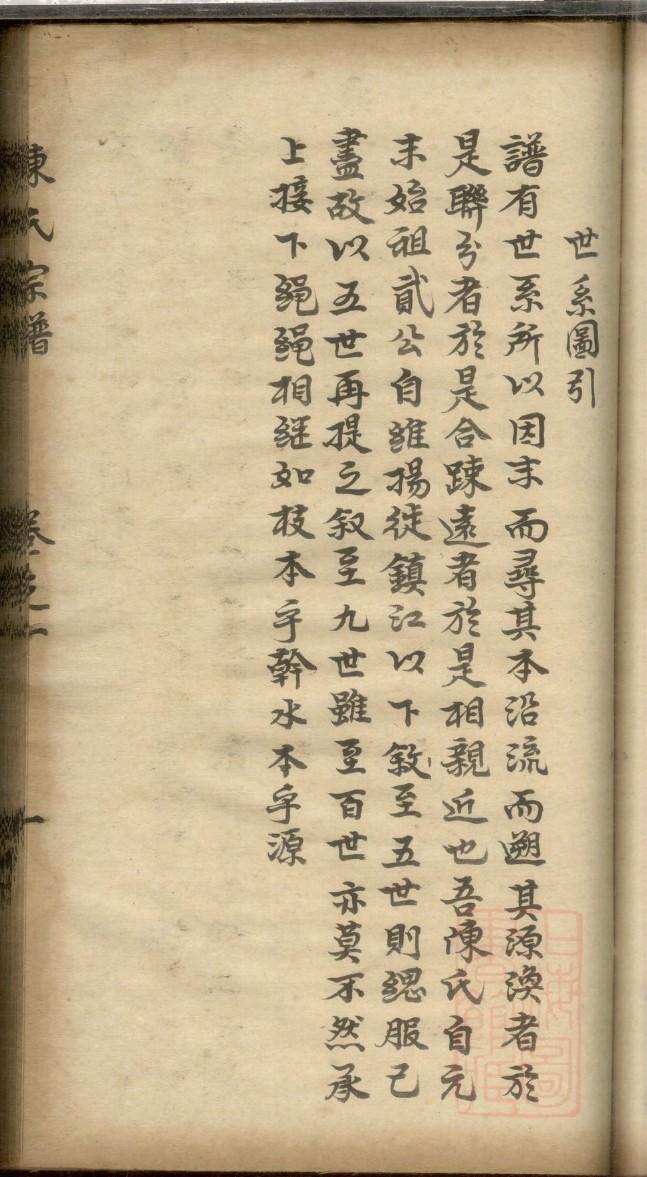 世系圖引
譜有世系所以因末而尋其本沿流而遡其源渙者於
是聯分者於是合踈遠者於是相親近也吾陳氏自元
末始祖貳公自維揚徙鎮江以下敘至五世則緦服已
盡故以五世再提之叙至九世雖至百世亦莫不然承
上接下繩繩相継如枝本乎幹水本乎源
陳氏宗譜
卷之一
一